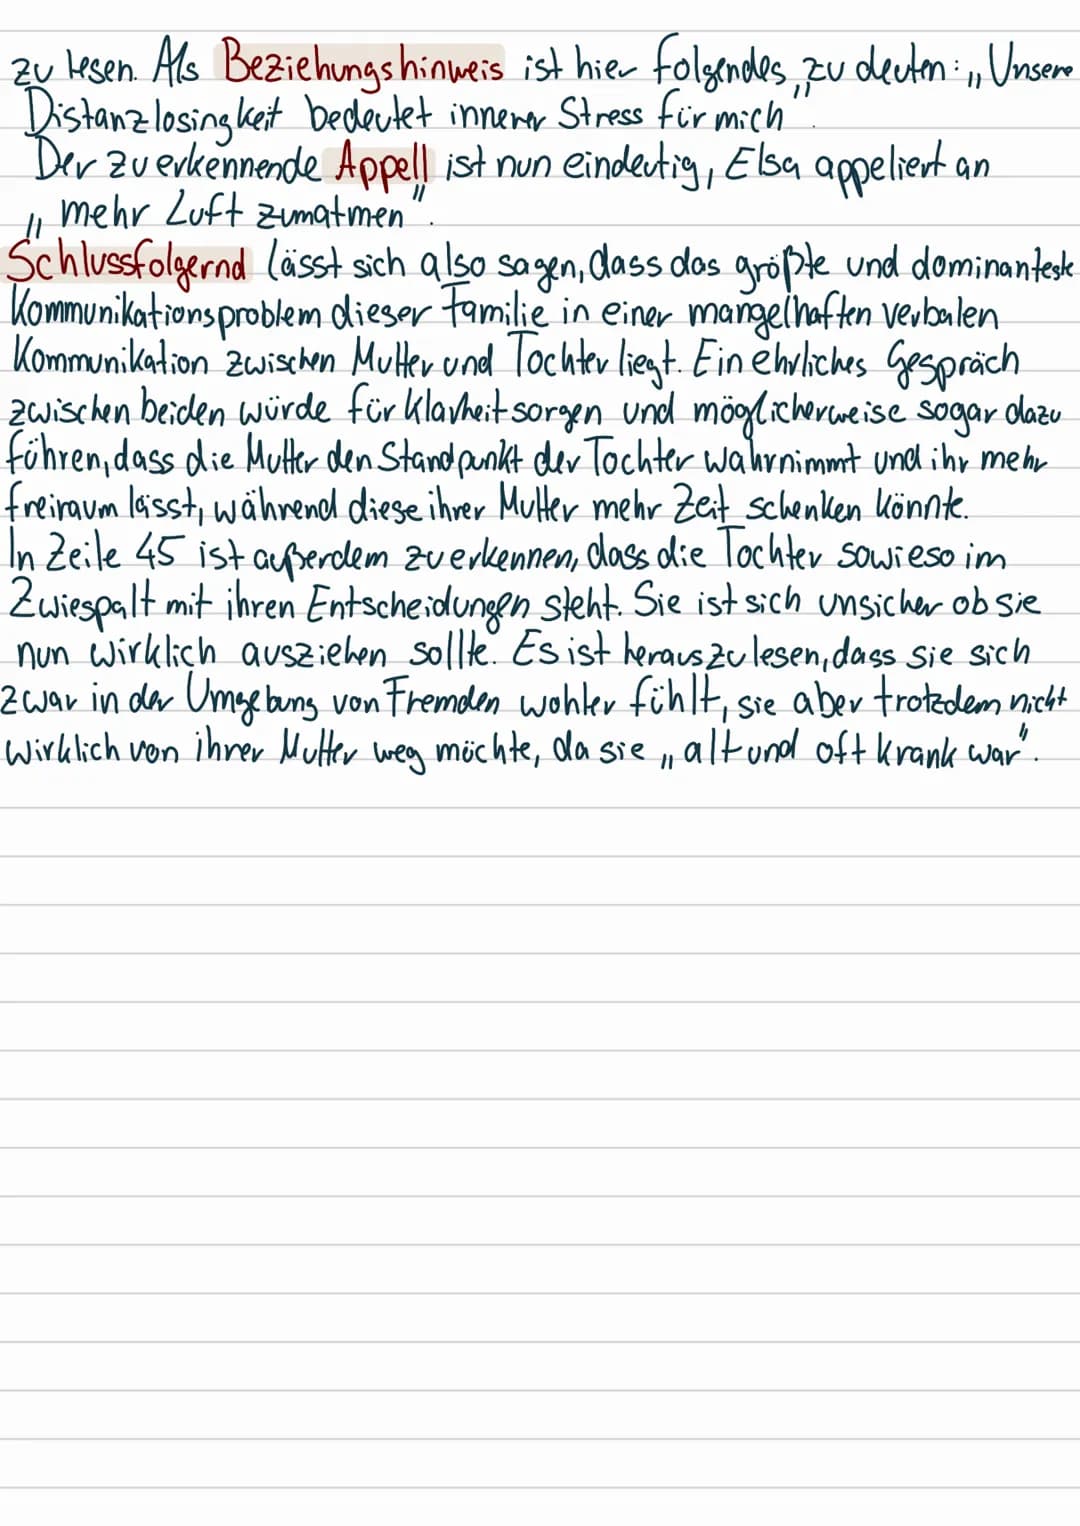 zu lesen. Als Beziehungshinweis ist hier folgendes zu deuten: „Unsere
Distanzlosingkeit bedeutet innerer Stress für mich".
Der zu erkennende Appell ist nun eindeutig, Elsa appeliert an
„mehr Luft zum atmen".
Schlussfolgernd lässt sich also sagen, dass das größte und dominanteste
Kommunikationsproblem dieser Familie in einer mangelhaften verbalen
Kommunikation zwischen Mutter und Tochter liegt. Ein ehrliches Gespräch
zwischen beiden würde für klarheit sorgen und möglicherweise sogar dazu
führen, dass die Mutter den Standpunkt der Tochter wahrnimmt und ihr mehr
freiraum lässt, während diese ihrer Mutter mehr Zeit schenken könnte.
In Zeile 45 ist außerdem zu erkennen, dass die Tochter sowieso im
Zwiespalt mit ihren Entscheidungen steht. Sie ist sich unsicher ob sie
nun wirklich ausziehen sollte. Es ist herauszulesen, dass sie sich
zwar in der Umgebung von Fremden wohler fühlt, sie aber trotzdem nicht
wirklich von ihrer Mutter weg möchte, da sie „alt und oft krank war".